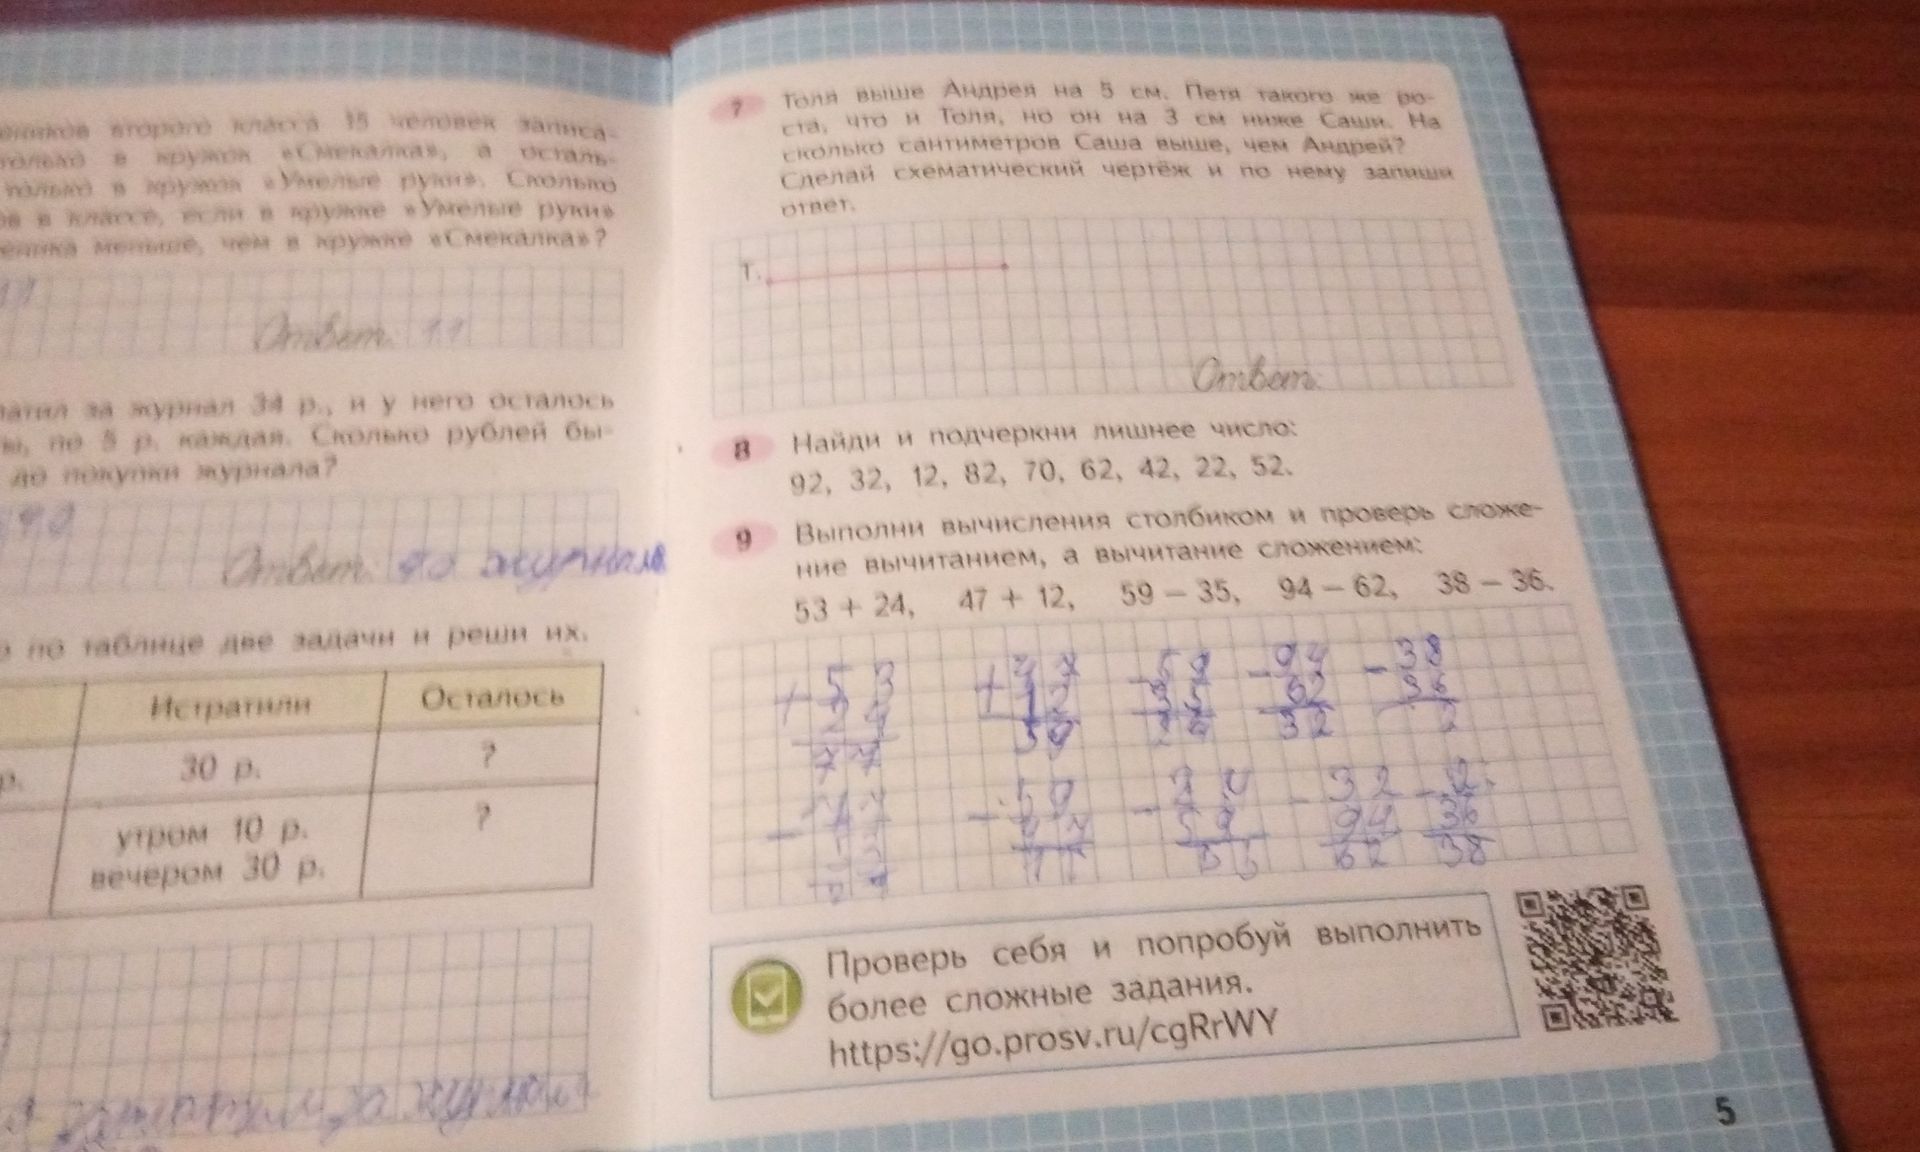 второго класса 15 человек записа-
только в кружок «Смекалка», а осталь-
только в кружок «Умелые руки». Сколько
в классе, если в кружке «Умелые руки»
меньше, чем в кружке «Смекалка»?
11
Ответ: 11
за журнал 34 р., и у него осталось
по 5 р. каждая. Сколько рублей бы-
до покупки журнала?
Ответ:
по таблице две задачи и реши их.
Истратили Осталось
р. 30 р. ?
утром 10 р. ?
вечером 30 р.
7 Толя выше Андрея на 5 см. Петя такого же ро-
ста, что и Толя, но он на 3 см ниже Саши. На
сколько сантиметров Саша выше, чем Андрей?
Сделай схематический чертёж и по нему запиши
ответ.
Т.
Ответ:
8 Найди и подчеркни лишнее число:
92, 32, 12, 82, 70, 62, 42, 22, 52.
9 Выполни вычисления столбиком и проверь сложе-
ние вычитанием, а вычитание сложением:
53 + 24, 47 + 12, 59 – 35, 94 – 62, 38 – 36.
+ 53 + 47 - 59 - 94 - 38
24 12 35 62 36
77 59 24 32 2
- 77 - 59 - 24 - 32 - 2
47 59 94 36
62 38
Проверь себя и попробуй выполнить
более сложные задания.
https://go.prosv.ru/cgRrWY
5